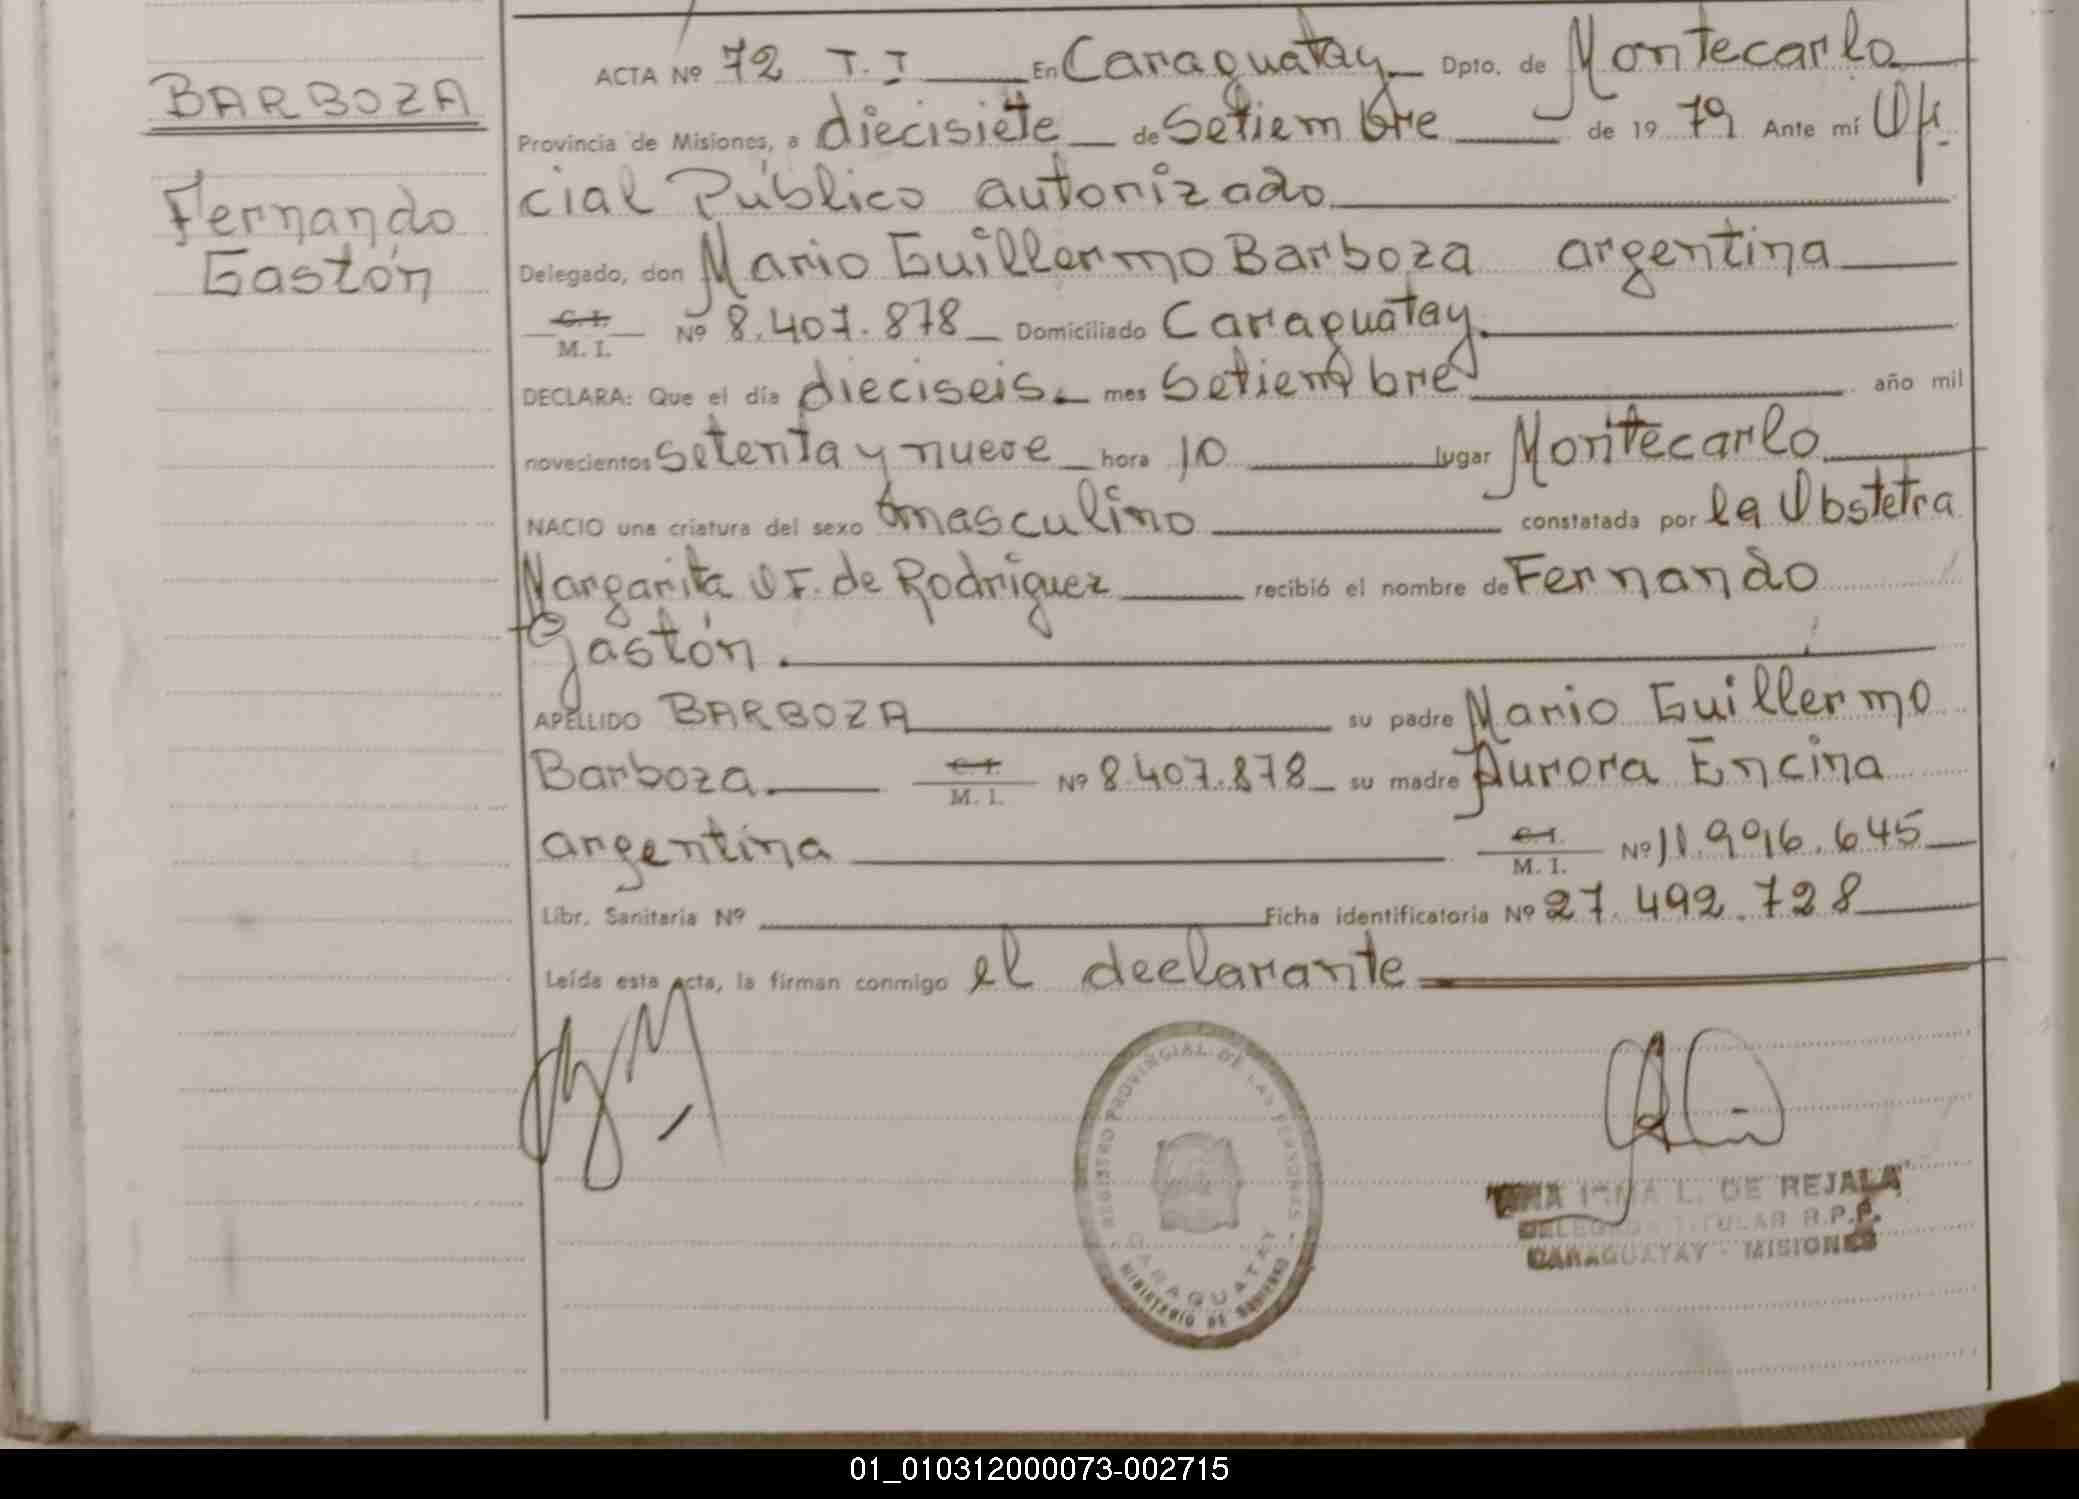 BARBOZA
Fernando
Gastón
ACTA Nº 72 T. I En Caraguatay Dpto. de Montecarlo
Provincia de Misiones, a diecisiete de Setiembre de 1979 Ante mí Ofi-
cial Público autorizado
Delegado, don Mario Guillermo Barboza argentina
C. I.
M. I. Nº 8.407.878 Domiciliado Caraguatay.
DECLARA: Que el día dieciseis. mes Setiembre año mil
novecientos setenta y nueve hora 10 lugar Montecarlo
NACIO una criatura del sexo masculino constatada por la Obstetra
Margarita de Rodriguez recibió el nombre de Fernando
Gastón.
APELLIDO BARBOZA su padre Mario Guillermo
Barboza. C. I.
M. I. Nº 8.407.878 su madre Aurora Encina
argentina C. I.
M. I. Nº 11.996.645
Libr. Sanitaria Nº Ficha identificatoria Nº 27.492.728
Leída esta acta, la firman conmigo el declarante
REGISTRO PROVINCIAL DE LAS PERSONAS
CARAGUATAY
MINISTERIO DE GOBIERNO
L. DE REJALA
DELEGADA TITULAR R.P.P.
CARAGUATAY - MISIONES
01_010312000073-002715